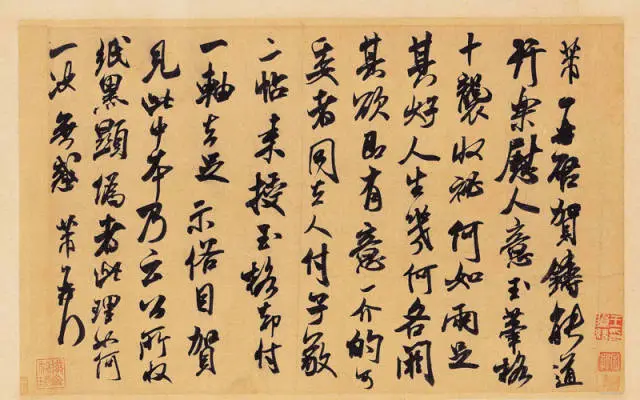 芾再啓賀鑄能道
行樂慰人意玉筆格
十襲收祕何如兩足
其好人生幾何各闕
其欲即有意一介的可
委者同去人付子敬
二帖來授玉格却付
一軸去足示俗目賀
見此中本乃云公所收
紙黑顯偽者此理如何
一決無惑芾